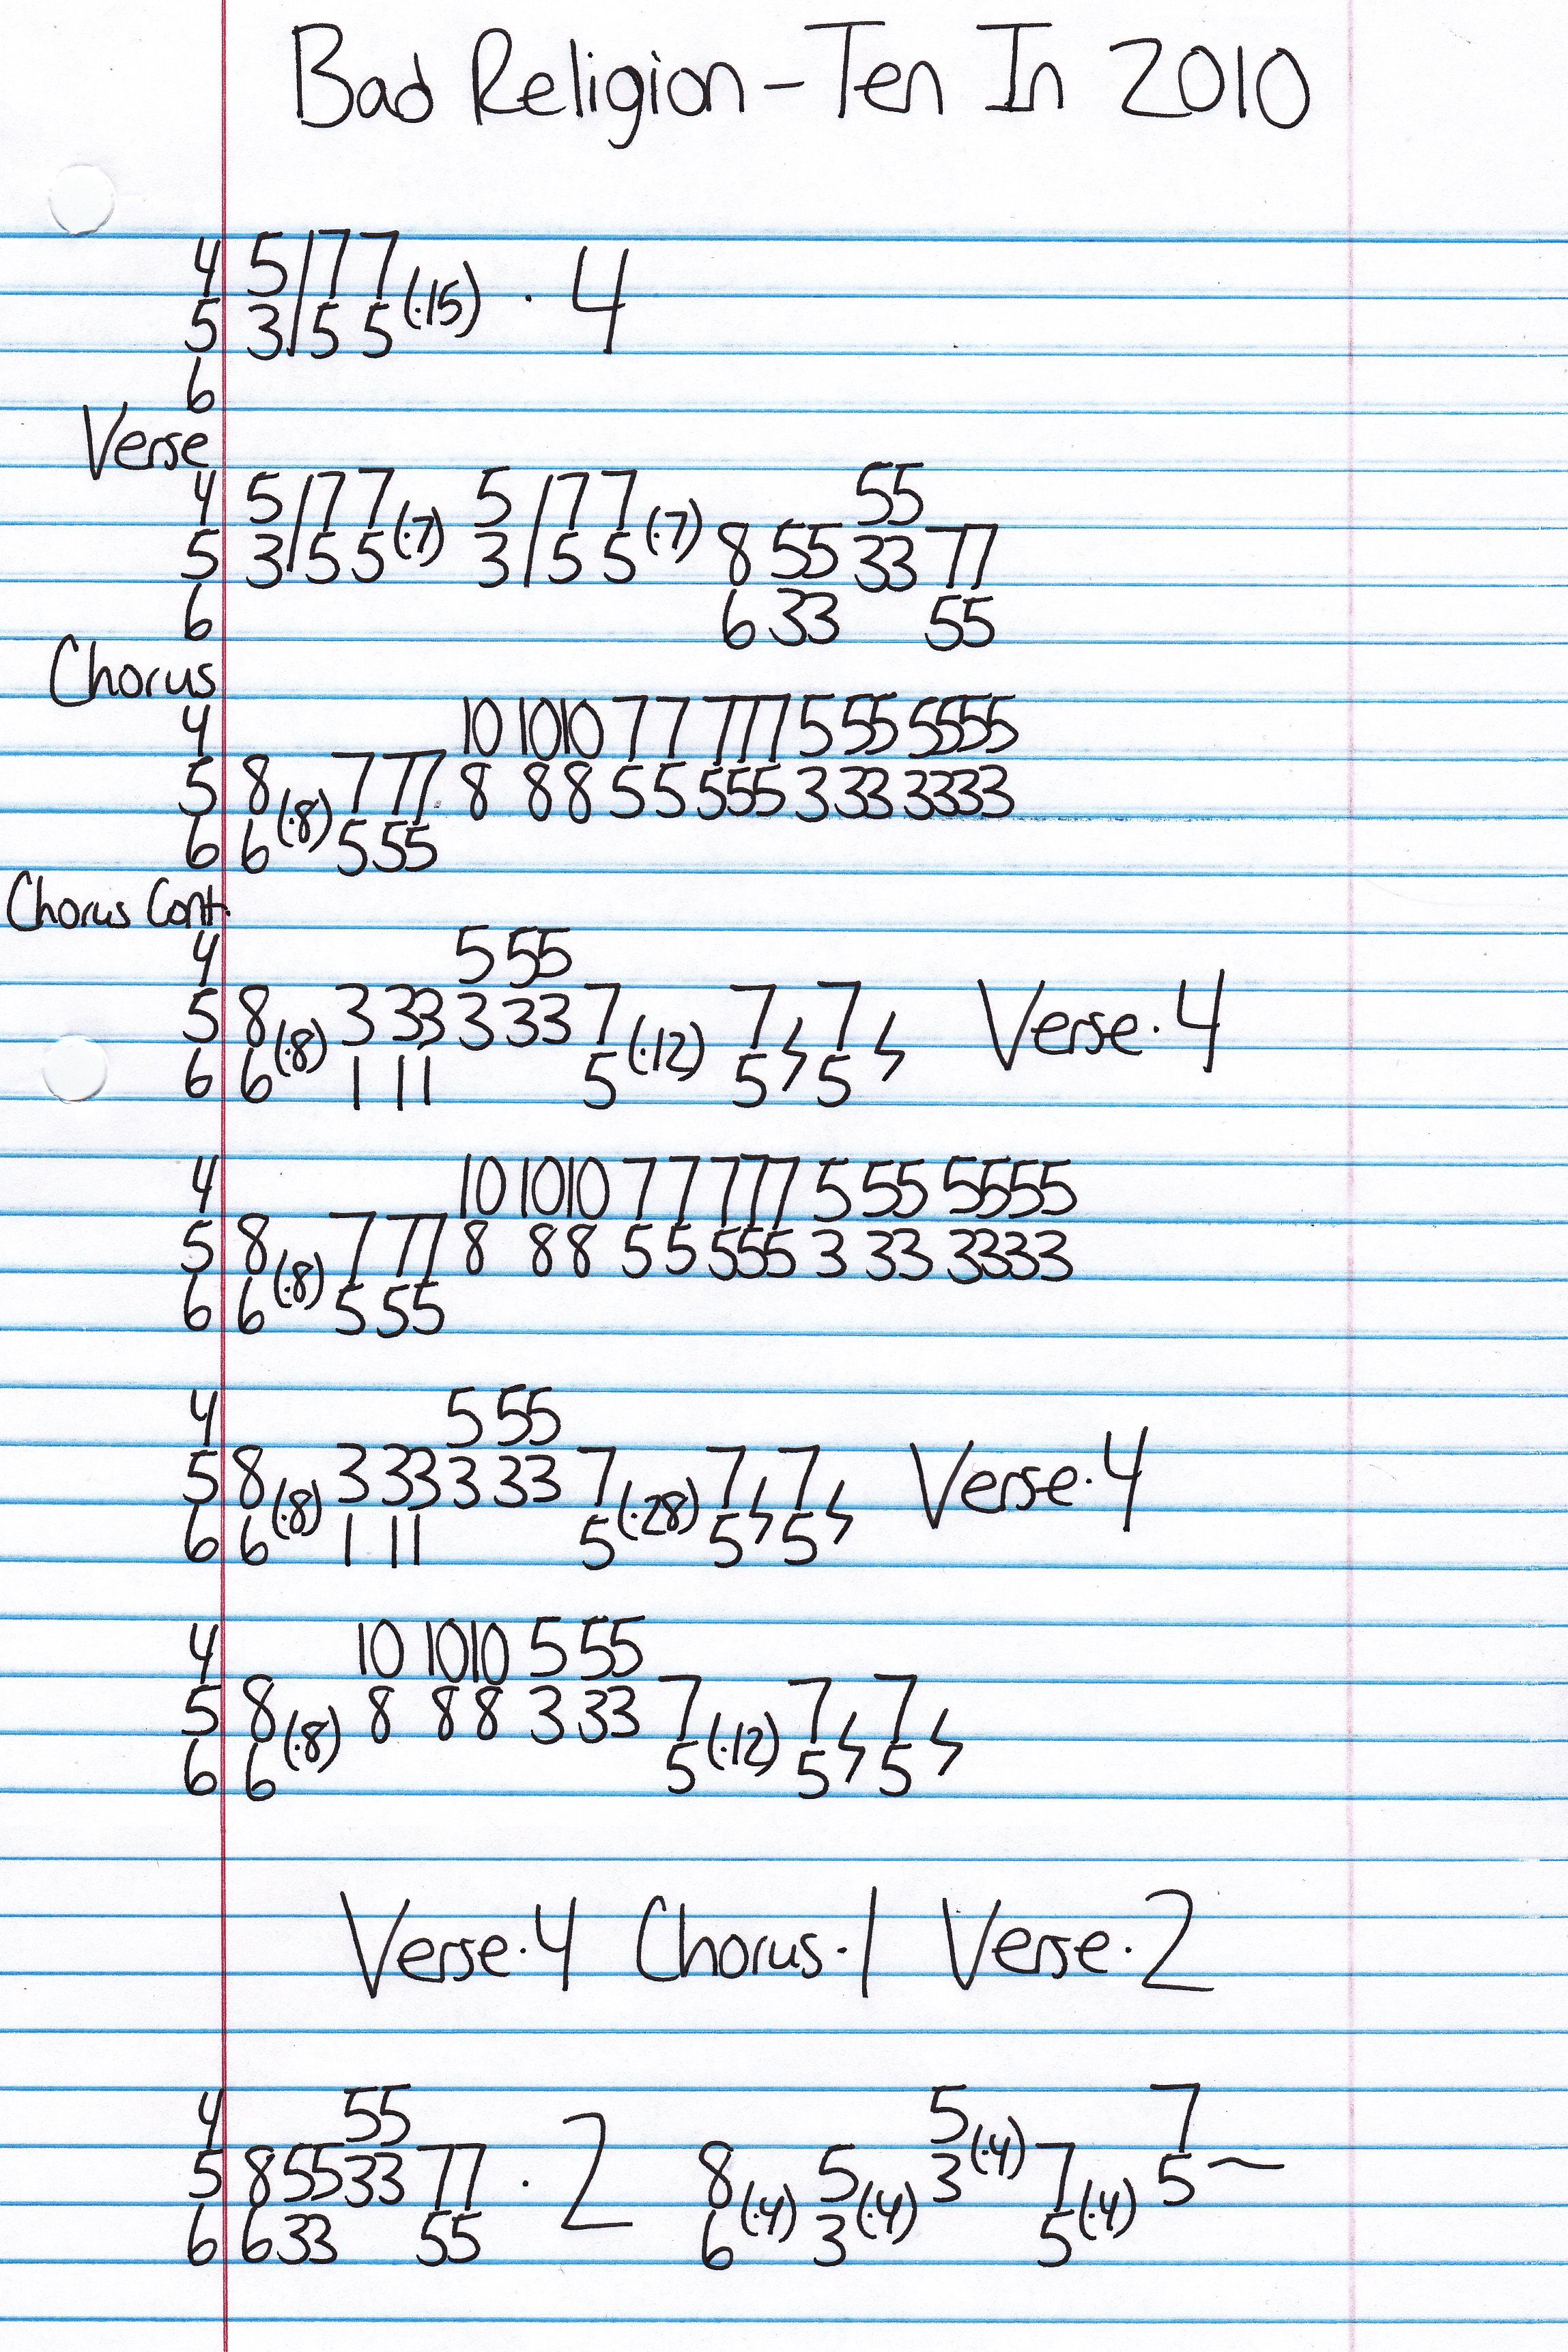 Bad Religion - Ten In 2010
4 5/77
5 3/5 5 (·15) · 4
6
Verse
4 5/77 5/77 55
5 3/5 5 (·7) 3/5 5 (·7) 8 55 33 77
6 6 33 55
Chorus
4 10 1010 77 777 5 55 5555
5 8 7 77 8 88 55 555 3 33 3333
6 6 (·8) 5 55
Chorus Cont.
4 5 55
5 8 3 33 3 33 7 7 7 Verse·4
6 6 (·8) 1 11 5 (·12) 5 5
4 10 1010 77 777 5 55 5555
5 8 7 77 8 88 55 555 3 33 3333
6 6 (·8) 5 55
4 5 55
5 8 3 33 3 33 7 7 7 Verse·4
6 6 (·8) 1 11 5 (·28) 5 5
4 10 1010 5 55
5 8 8 88 3 33 7 7 7
6 6 (·8) 5 (·12) 5 5
Verse·4 Chorus·1 Verse·2
4 55 5 7
5 8 55 33 77 · 2 8 5 3 (·4) 7 5~
6 6 33 55 6 (·4) 3 (·4) 5 (·4)